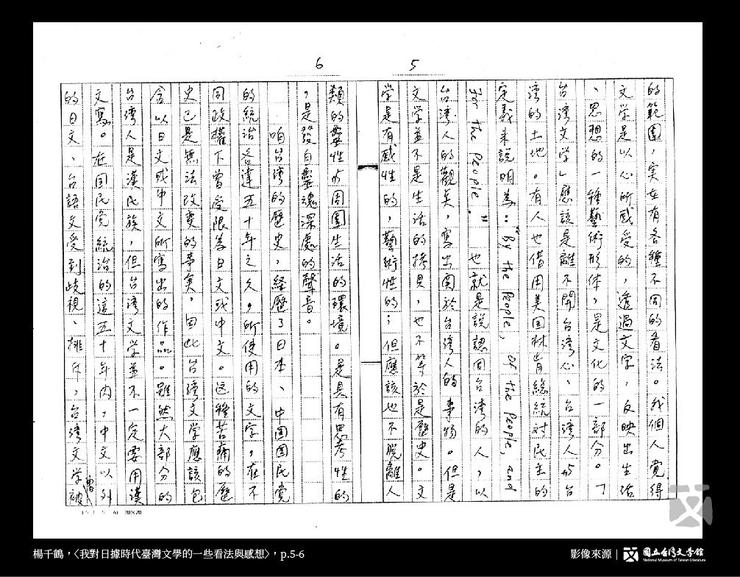 5
的範圍，實在有各種不同的看法。我個人覺得
文学是以心所感受的，透過文字，反映出生活
、思想的一種藝術形体，是文化的一部分。「
台湾文学」應該是離不開台湾心、台湾人与台
湾的土地。有人也借用美国林肯總統对民主的
定義来說明為："By the People, of the People, and
for the People,"也就是說認同台湾的人，以
台湾人的觀点，寫出関於台湾人的事物。但是
文学並不是生活的拷貝，也不等於是歷史。文
学是有感性的，藝術性的；但應該也不脱離人
6
類的靈性与周圍生活的環境。是具有思考性的
，是發自靈魂深處的聲音。
咱台湾的歷史，経歷了日本、中国国民党
的統治各達五十年之久。所使用的文字，在不
同政權下曾受限為日文或中文。這種苦痛的歷
史已是無法改変的事実，因此台湾文学應該包
含以日文或中文所寫出的作品。雖然大部分的
台湾人是漢民族，但台湾文学並不一定要用漢
文寫。在国民党統治的這五十年内，中文以外
的日文、台語文受到歧視、排斥，台湾文学曾被
楊千鶴，〈我對日據時代臺灣文學的一些看法與感想〉，p.5-6
影像來源｜國立台灣文學館
National Museum of Taiwan Literature